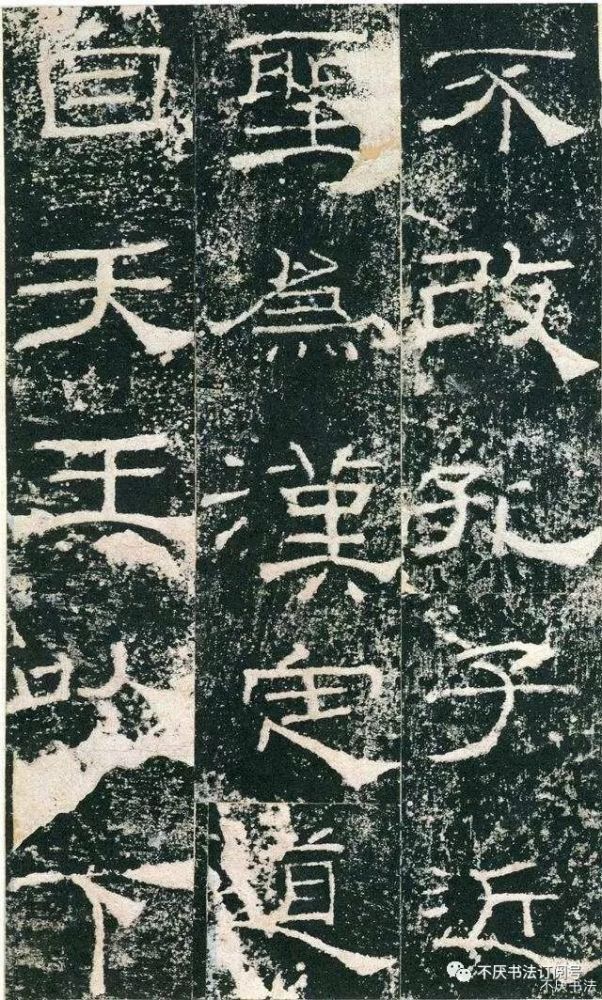 不改孔子近
聖為漢定道
自天王以下
不厌书法订阅号
不厌书法